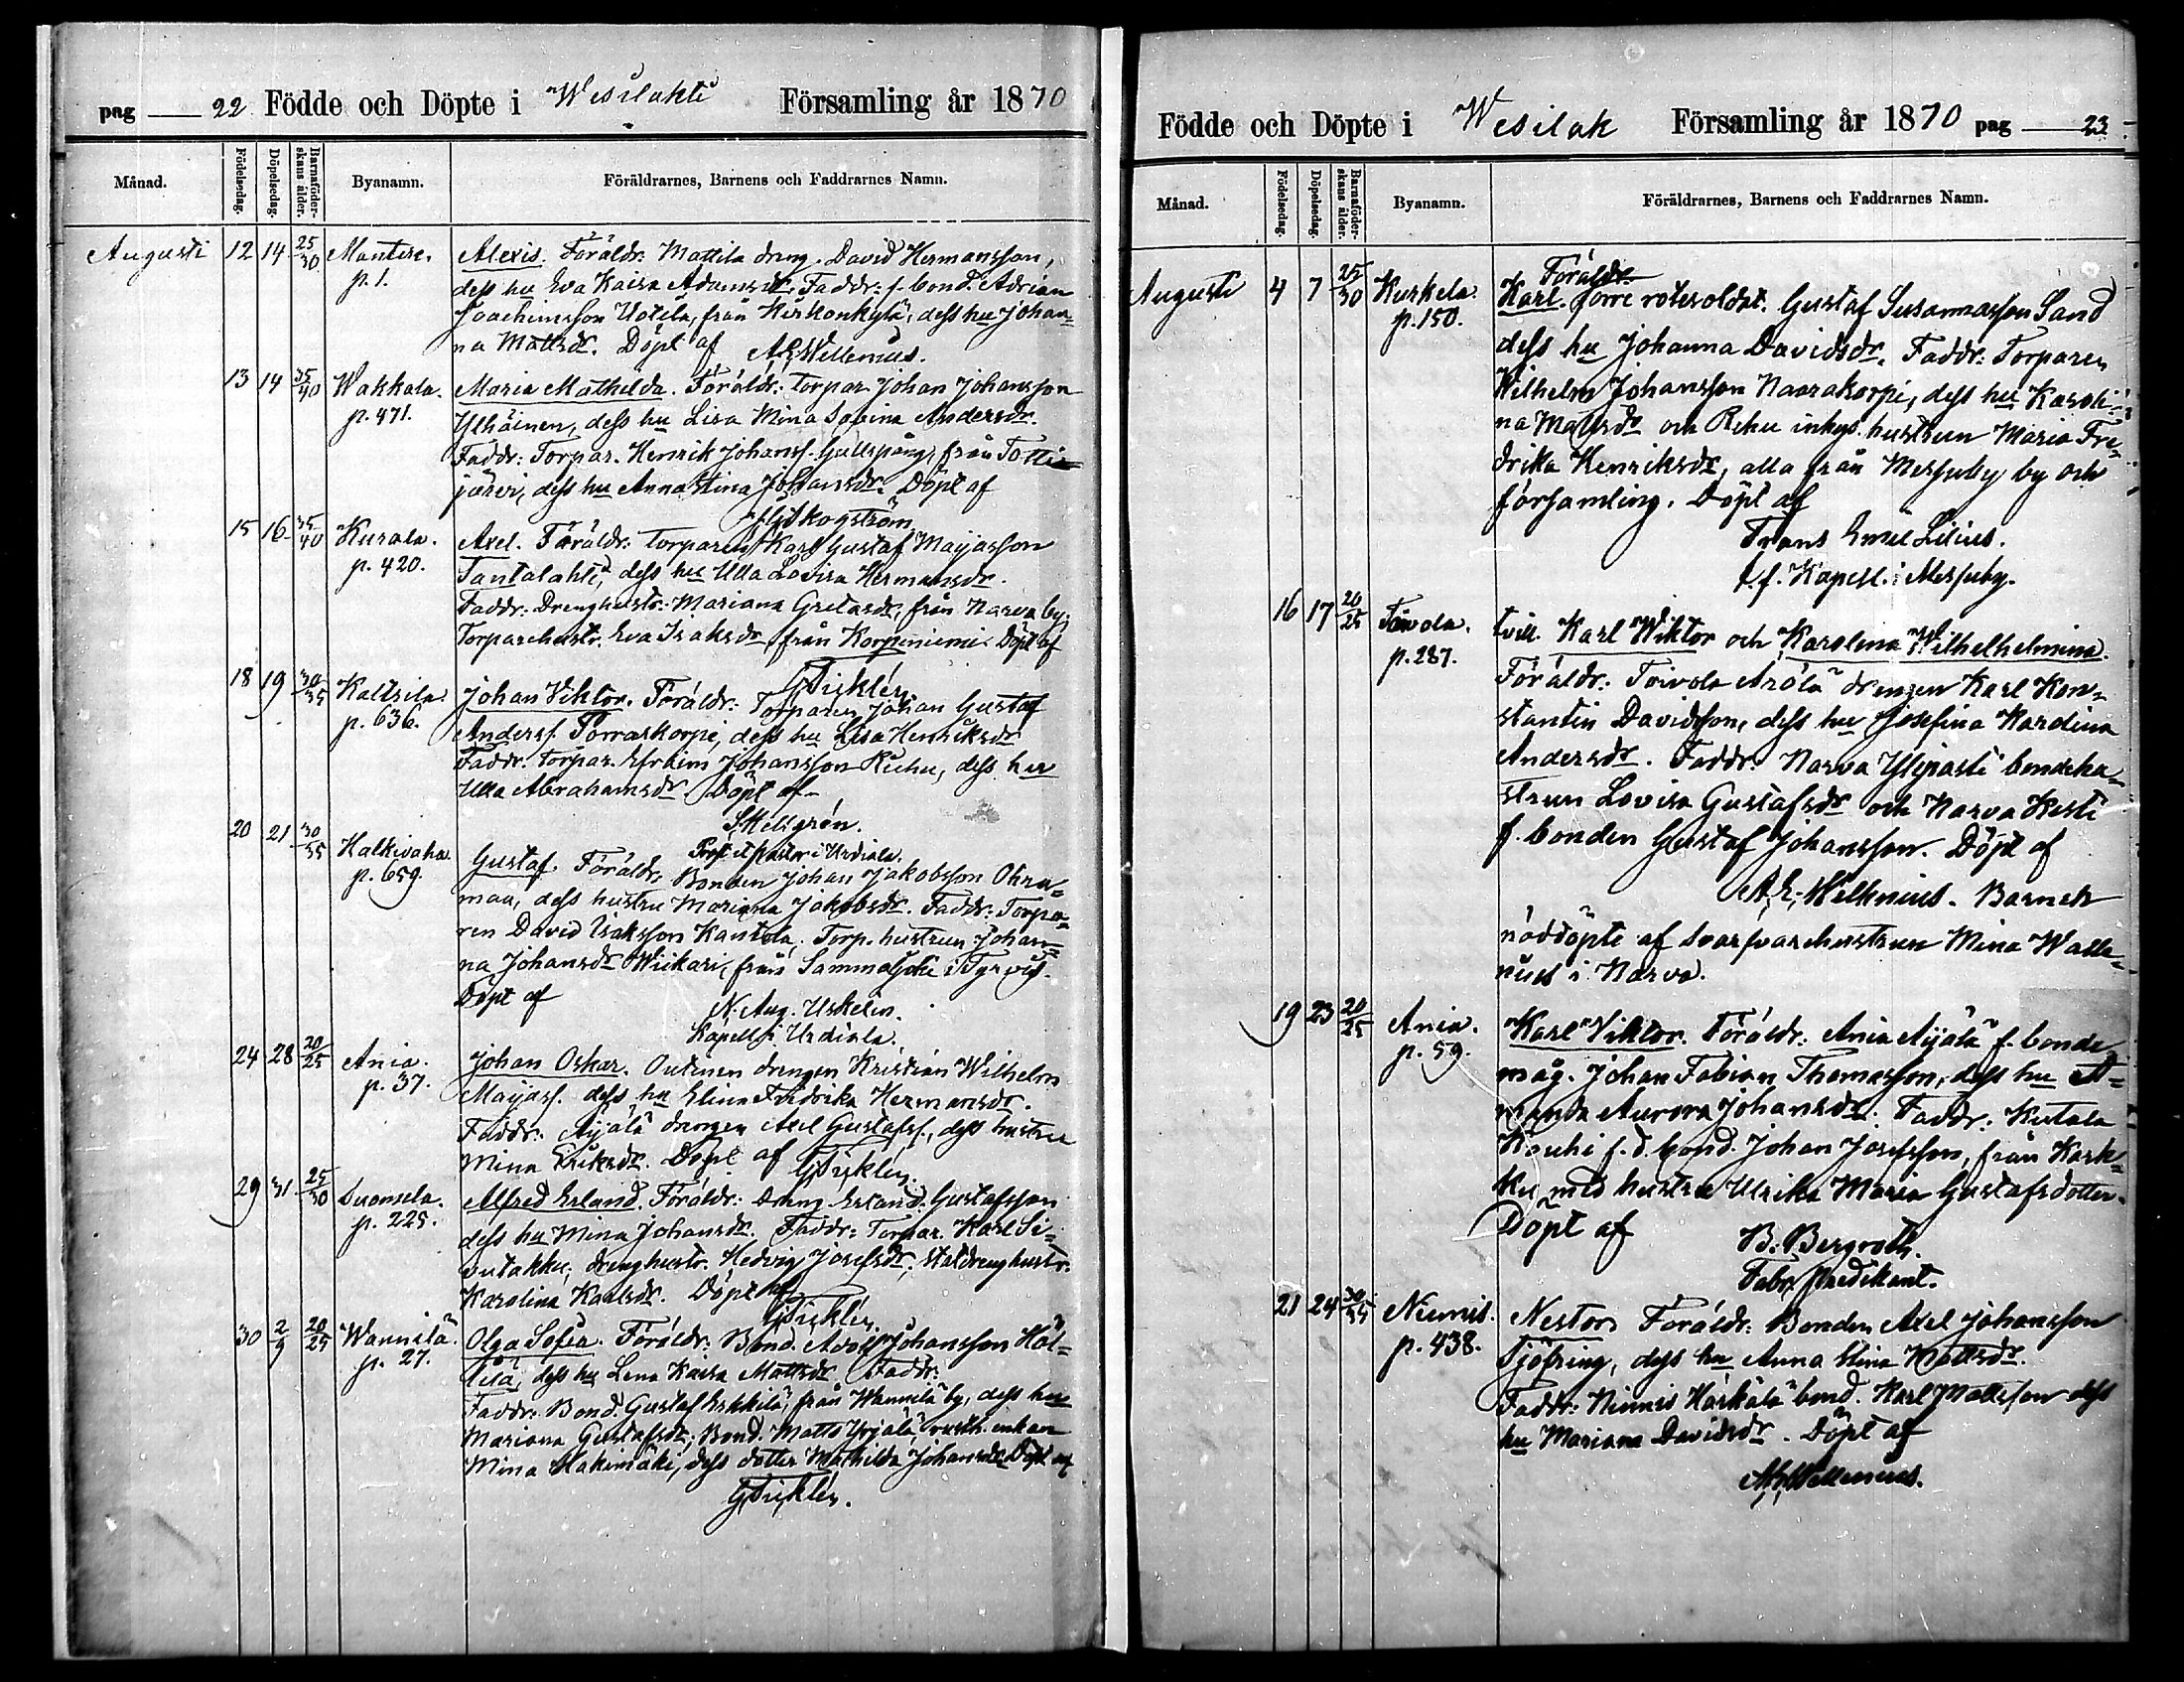 pag 22 Födde och Döpte i Wesilakti Församling år 1870
Månad. Födelsedag. Döpelsedag. Barnaföderskans ålder. Byanamn. Föräldrarnes, Barnens och Faddrarnes Namn.
Augusti 12 14 25/30 Mantere. Alexis. Föräldr: Mattila dreng David Hermansson,
p. 1. dess hu Eva Kaisa Adamsdr. Faddr: f. bond. Adrian
Joachimsson Uotila, från Kirkonkylä, dess hu Johan-
na Mattsdr. Döpt af A.E. Wellenius.
13 14 35/40 Wakkala. Maria Mathilda. Föräldr: Torpar. Johan Johansson
p. 471. Ylhäinen, dess hu Lisa Mina Sovina Andersdr.
Faddr: Torpar. Henrik Johanss. Gullspång, från Totti-
järvi, dess hu Anna Stina Johansdr. Döpt af
Skogström
15 16 35/40 Kurala. Axel. Föräldr: Torparen Karl Gustaf Maijasson
p. 420. Tantalahti, dess hu Ulla Lovisa Hermansdr.
Faddr: Drenghustr. Mariana Gretasdr, från Narva by;
Torparehustr. Eva Isaksdr, från Korpiniemi. Döpt af
G Ticklén.
18 19 30/35 Kaltsila. Johan Viktor. Föräldr: Torparen Johan Gustaf
p. 636. Anderss. Porraskorpi, dess hu Lisa Henriksdr
Faddr. torpar. Efraim Johansson Kuhu, dess hu
Ulla Abrahamsdr. Döpt af
S. Hellgrén.
Prost et pastor i Urdiala.
20 21 30/35 Halkivaha. Gustaf. Föräldr: Bonden Johan Jakobsson Ohra-
p. 659. maa, dess hustru Mariana Jakobsdr. Faddr: Torpa-
ren David Isaksson Kantola, Torp. hustrun Johan-
na Johansdr Wiikari, från Sammaljoki i Tyrvis.
Döpt af N. Aug. Uskelin.
Kapell. i Urdiala.
24 28 20/25 Ania. Johan Oskar. Outinen drengen Kristian Wilhelm
p. 37. Maijass. dess hu Elina Fredrika Hermansdr.
Faddr. Äijälä drengen Axel Gustafss., dess hustru
Mina Eriksdr. Döpt af G Ticklén.
29 31 25/30 Suomela. Alfred Erland. Föräldr: Dreng Erland Gustafsson
p. 225. dess hu Mina Johansdr. Faddr: Torpar. Karl Si-
vutakku; drenghustr. Hedvig Josefsdr; statdrenghustr.
Karolina Karlsdr. Döpt af
G Ticklén.
30 2/9 20/25 Wannilä. Olga Sofia. Föräldr: Bond. Adolf Johansson Höl-
p. 27. dess hu Lena Kaisa Mattsdr Faddr:
Faddr: Bond. Gustaf Erkkilä, från Wannilä by, dess hu
Mariana Gustafsdr; Bond. Matts Yrjälä enkan
Mina Hakimäki, dess dotter Mathilda Johansdr. Döpt af
G Ticklén.
Födde och Döpte i Wesilak Församling år 1870 pag 23
Månad. Födelsedag. Döpelsedag. Barnaföderskans ålder. Byanamn. Föräldrarnes, Barnens och Faddrarnes Namn.
Föräldr:
Augusti 4 7 25/30 Kurkela. Karl. förre rotesoldat. Gustaf Susannasson Sand
p. 150. dess hu Johanna Davidsdr. Faddr: Torparen
Wilhelm Johansson Naarakorpi, dess hu Karoli-
na Mattsdr och Rehu inhys. hustrun Maria Fre-
drika Henriksdr, alla från Messuby by och
församling. Döpt af
Frans Emil Lilius.
t.f. Kapell. i Messuby.
16 17 20/25 Toivola. tvill. Karl Wiktor och Karolina Wilhelhelmina.
p. 287. Föräldr: Toivola Arölä drengen Karl Kon-
stantin Davidsson, dess hu Josefina Karolina
Andersdr. Faddr: Narva Ylipasti bondehu-
strun Lovisa Gustafsdr och Narva Kesti
f. bonden Gustaf Johansson. Döpt af
A.E. Wellenius. Barnen
nöddöpte af svarfvarehustrun Mina Walle-
nius i Narva.
19 23 20/25 Ania. Karl Viktor. Föräldr: Ania Äijälä f. bonde
p. 59. måg. Johan Fabian Thomasson, dess hu A-
manda Aurora Johansdr. Faddr: Kutala
Kouhi f.d. bond. Johan Josefsson, från Kark-
ku med hustru Ulrika Maria Gustafsdotter.
Döpt af B. Bergroth.
Fabr. predikant.
21 24 30/35 Niemis. Nestor. Föräldr: Bonden Axel Johansson
p. 438. Sjöfring, dess hu Anna Stina Mattsdr.
Faddr: Niemis Härkälä bond. Karl Mattsson dess
hu Mariana Davidsdr. Döpt af
A.E. Wellenius.